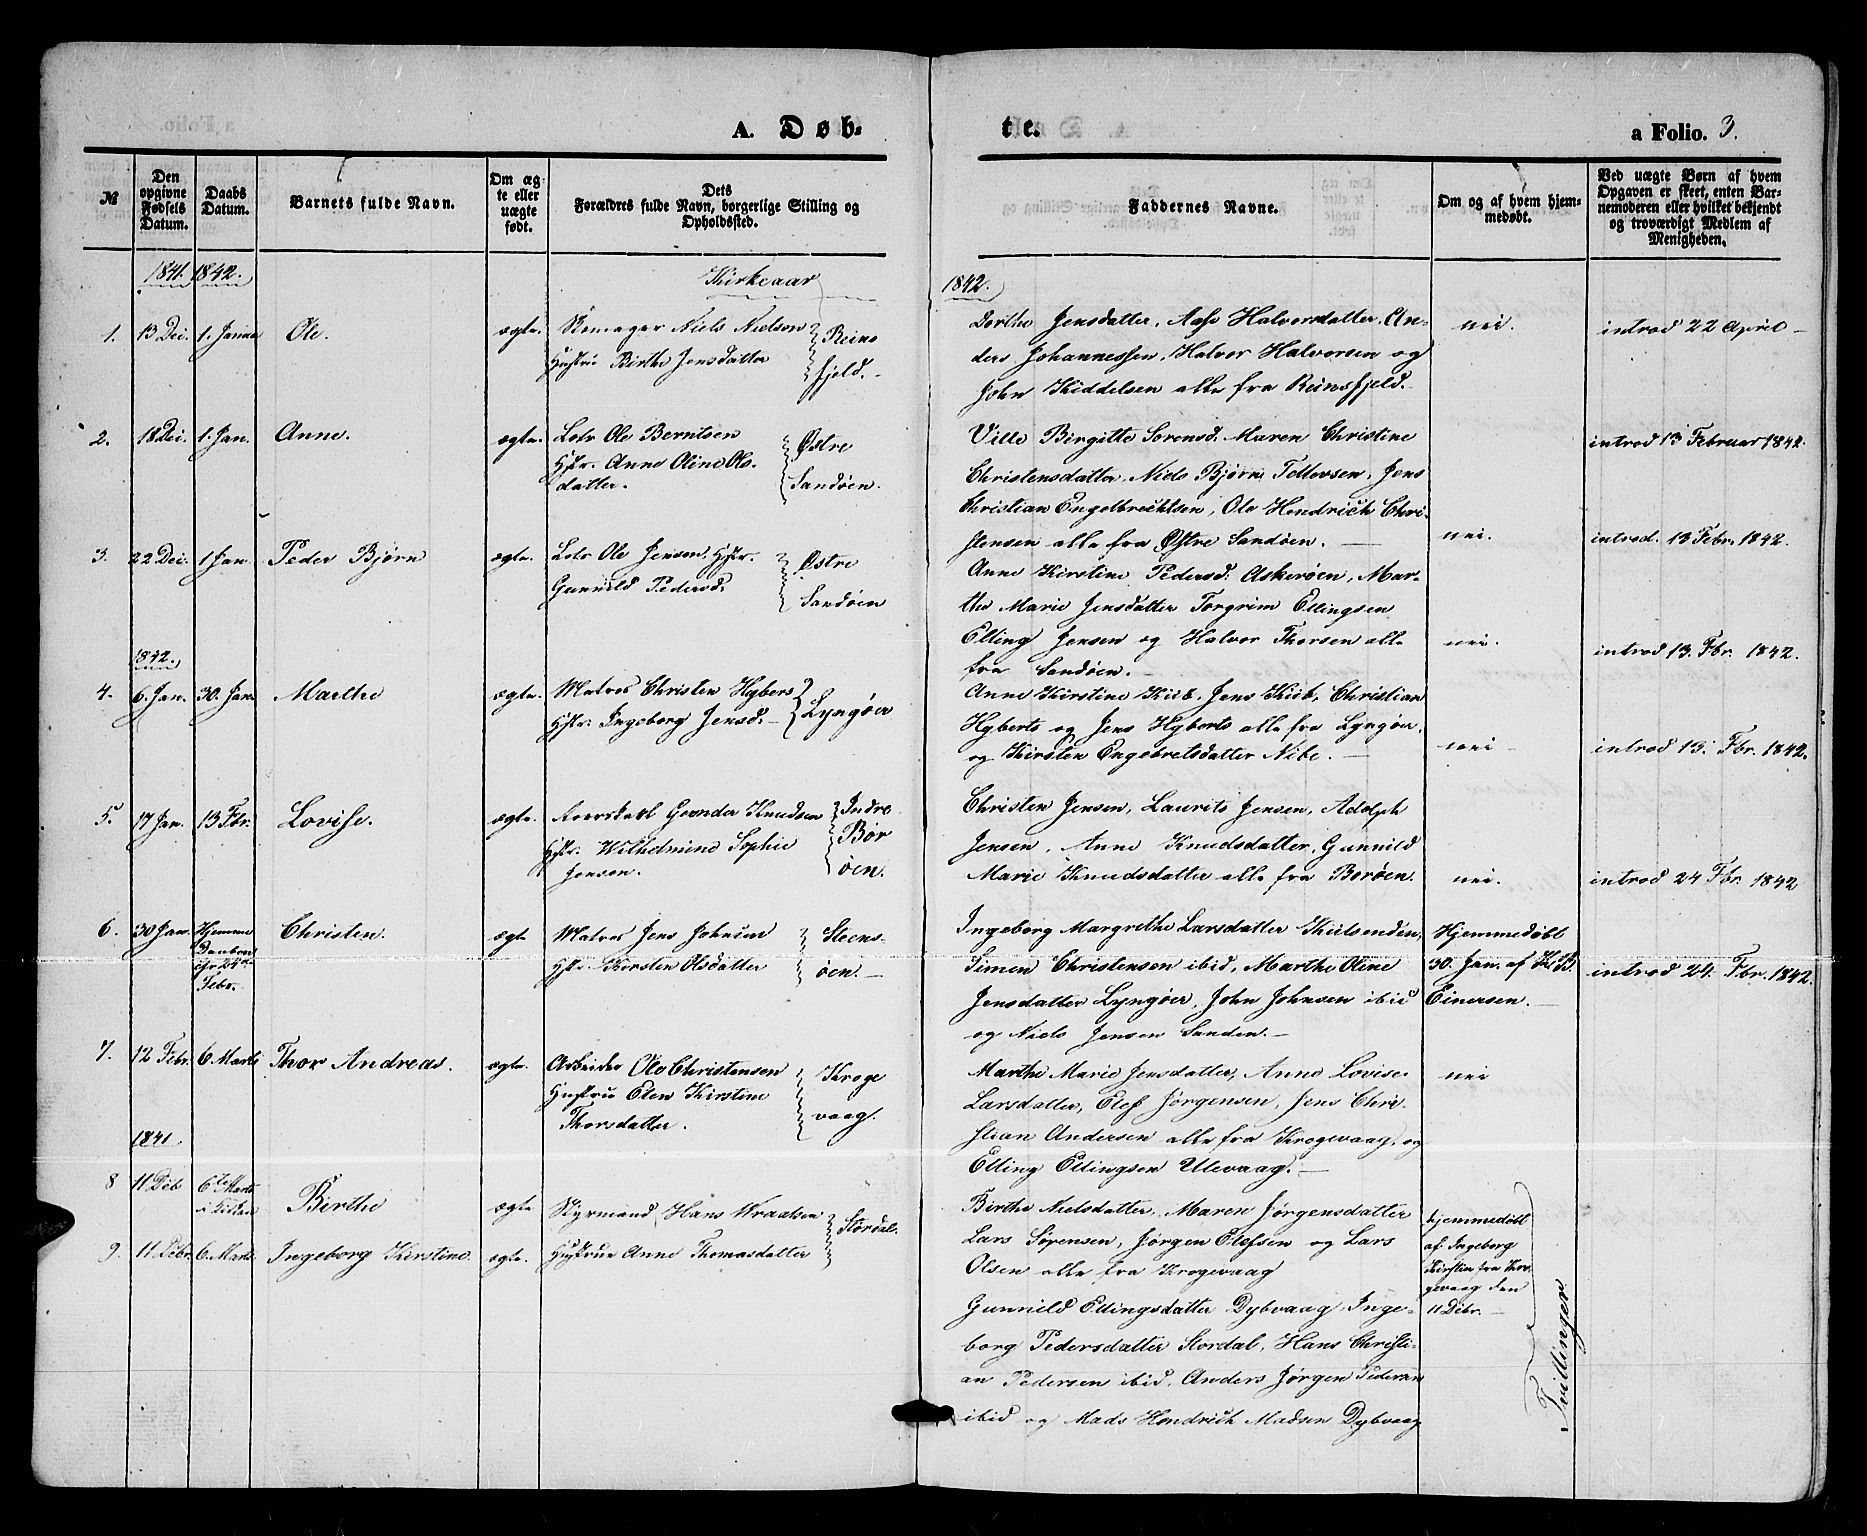 A. Døb-
te.
a Folio. 3.
№
Den opgivne Fødsels Datum.
Daabs Datum.
Barnets fulde Navn.
Om ægte eller uægte født.
Dets Forældres fulde Navn, borgerlige Stilling og Opholdssted.
Faddernes Navne.
Om og af hvem hjemmedøbt.
Ved uægte Børn af hvem Opgaven er skeet, enten Barnemoderen eller hvilket bekjendt og troværdigt Medlem af Menigheden.
1841. 1842. Kirkeaar 1842.
1. 13 Dec. 1. Janua Ole. ægte. Skomager Niels Nielsen
Hustru Birthe Jensdatter
Reins
fjeld.
Dorthe Jensdatter, Aase Halvorsdatter, An-
ders Johannessen, Halvor Halvorsen og
John Kiddelsen alle fra Reinsfjeld.
nei. introd 22 April
2. 18 Dec. 1. Jan. Anne. ægte. Lots Ole Berntsen
Hstr. Anne Oline Ols-
datter.
Østre
Sandøen.
Ville Birgitte Sorensd. Maren Christine
Christensdatter, Niels Bjørn Tellevsen, Jens
Christian Engelbrechtsen, Ole Hendrich Chri-
stensen alle fra Østre Sandøen.
introd 13 Februar 1842.
3. 22 Dec. 1 Jan. Peder Bjørn ægte. Lots Ole Jensen. Hstr.
Gunnild Pedersd.
Østre
Sandøen
nei. introd. 13 Febr. 1842.
Anne Kirstine Pedersd: Askerøen, Mar-
the Marie Jensdatter Torgrim Ellingsen
Elling Jensen og Halvor Thorsen alle
fra Sandøen.
nei. introd 13. Fbr. 1842.
1842.
4. 6. Jan. 30. Jan. Marthe ægte. Matros Christen Hyberts
Hstr: Ingeborg Jensd.
Lyngøer
Anne Kirstine Kiil, Jens Kiil, Christian
Hyberts og Jens Hyberts alle fra Lyngøer,
og Kirsten Engebretsdatter Nibe.
nei introd 13. Fbr. 1842.
5. 17 Jan. 13 Fbr. Lovise. ægte. Gunder Knudsen
Hstr. Wilhelmine Sophie
Jensen.
Indre
Bor
øen.
Christen Jensen, Laurits Jensen, Adolph
Jensen, Anne Knudsdatter, Gunnild
Marie Knudsdatter alle fra Borøen.
nei. introd 24 Fbr. 1842
6. 30 Jan. Hjemme
24de
Febr.
Christen. ægte Matros Jens Johnsen
Hstr. Kersten Olsdatter
Steens-
øen.
Ingeborg Margrethe Larsdatter
Simen Christensen ibid, Marthe Oline
Jensdatter Lyngøer, John Johnsen ibid
og Niels Jensen Sanden.
Hjemmedøbt
30. Jan. af
Einersen.
introd 24. Fbr. 1842.
7. 12 Febr. 6 Marts Thor Andreas. ægte. Arbeider Ole Christensen
Hustru Elen Kirstine
Thorsdatter.
Kroge
vaag.
Marthe Marie Jensdatter, Anne Lovise
Larsdatter, Elef Jørgensen, Jens Chri-
stian Andersen alle fra Krogevaag, og
Elling Ellingsen Ulevaag.
nei
1841
8 11 Deb 6te Marts
i Kirken
Birthe ægte Styrmand Hans Wraalsen
Hustrue Anne Thomasdatter
Stordal.
Birthe Nielsdatter, Maren Jørgensdatter
Lars Sørensen, Jørgen Elefsen og Lars
Olsen alle fra Krogevaag
hjemmedøbt
af Ingeborg
Kirstine fra Kro-
gevaag den
11 Debr.
9. 11 Debr. 6. Marts Ingeborg Kirstine. ægte.
Gunnild Ellingsdatter Dybvaag, Inge-
borg Pedersdatter Stordal, Hans Christi-
an Pedersen ibid, Anders Jørgen Pedersen
ibid og Mads Hendrich Madsen Dybvaag
Tvillinger